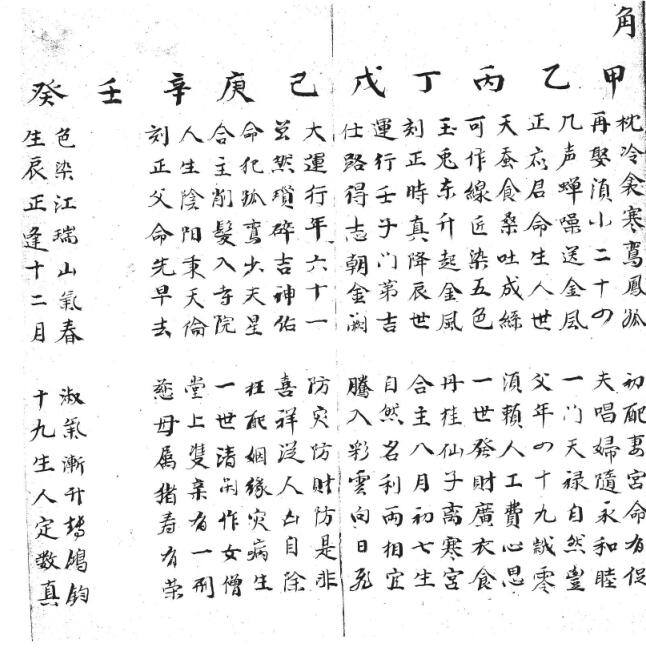 角
甲 乙 丙 丁 戊 己 庚 辛 壬 癸
枕冷衾寒鸞鳳孤 初配妻宮命有促
再娶須小二十の 夫唱婦隨永和睦
几声蟬噪送金風 一门天禄自然豐
正君命生人世 父年の十九歲零
天蚕食桑吐成絲 須賴人工費心思
可作線匠染五色 一世發財廣衣食
玉兔东升起金風 丹桂仙子离寒宮
刻正時真降辰世 合主八月初七生
運行壬子门第吉 自然名利两相宜
仕路得志朝金阙 騰入彩雲向日飛
大運行年六十一 防灾防財防是非
虽然瑣碎吉神佑 喜祥人凶自除
命犯孤鸞少天星 枉配姻緣灾病生
合主削髮入寺院 一世清闲作女僧
人生陰阳秉天倫 堂上雙亲有一刑
刻正父命先早去 慈母属猪寿有荣
色染江瑞山氣春 淑氣漸升轉鴻鈞
生辰正逢十二月 十九生人定数真